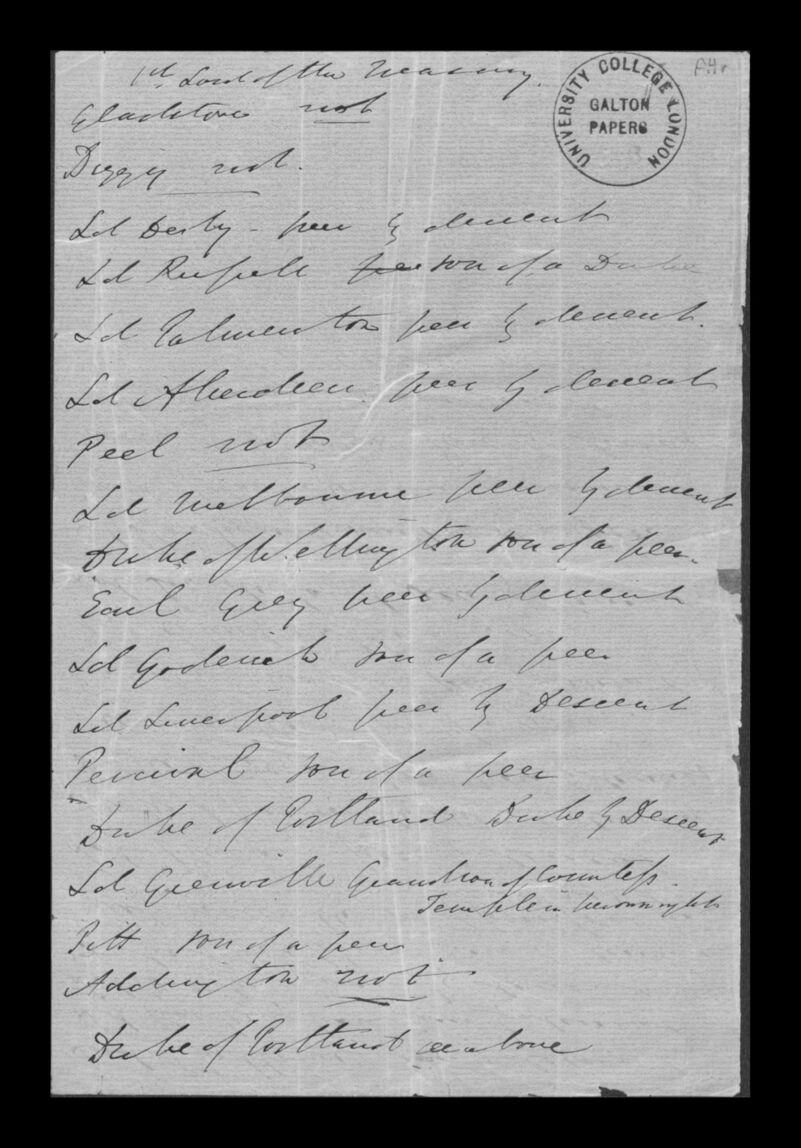 1st Lord of the Treasury.
Gladstone not
Dizzy not.
Ld Derby - peer by descent
Ld Russell peer son of a Duke
Ld Palmerston peer by descent.
Ld Aberdeen peer by descent
Peel not
Ld Melbourne peer by descent
Duke of Wellington son of a peer.
Earl Grey peer by descent
Ld Goderich son of a peer
Ld Liverpool peer by Descent
Percival son of a peer
Duke of Portland Duke by Descent
Ld Grenville Grandson of Countess
Temple in her own right
Pitt son of a peer
Addington not
Duke of Portland as above
UNIVERSITY COLLEGE LONDON
GALTON
PAPERS